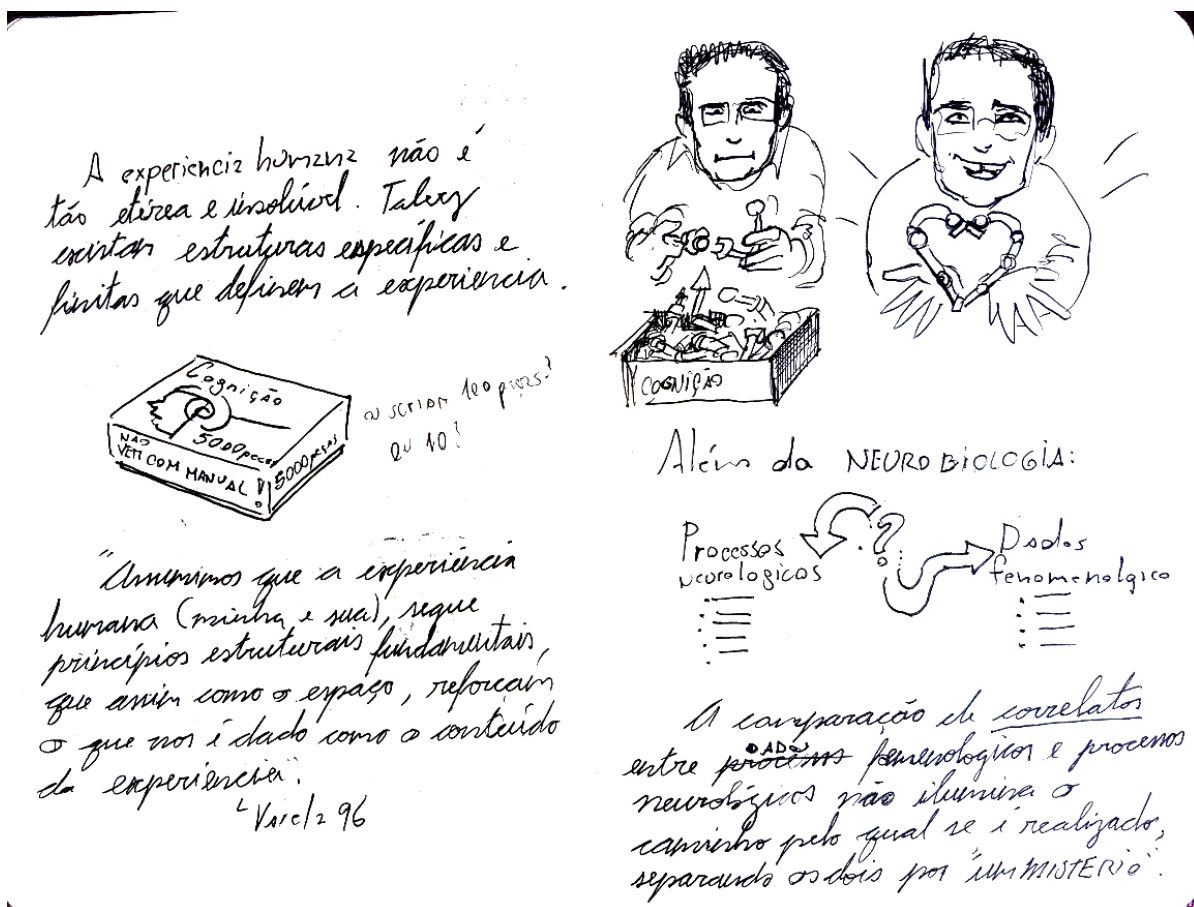 A experiencia humana não é
tão etérea e insolúvel. Talvez
existam estruturas específicas e
finitas que definem a experiencia.
Cognição
5000 peças
NÃO
VEM COM MANUAL!
5000 peças
ou seriam 100 peças?
ou 10?
"Assumimos que a experiência
humana (minha e sua), segue
princípios estruturais fundamentais,
que assim como o espaço, reforçam
o que nos é dado como o conteúdo
da experiência".
Varela 96
COGNIÇÃO
Além da NEUROBIOLOGIA:
Processos
neurologicos
?
Dados
fenomenolgico
A comparação de correlatos
DADOS
entre processos fenomenologicos e processos
neurológicos não ilumina o
caminho pelo qual se é realizado,
separando os dois por "um MISTERIO".